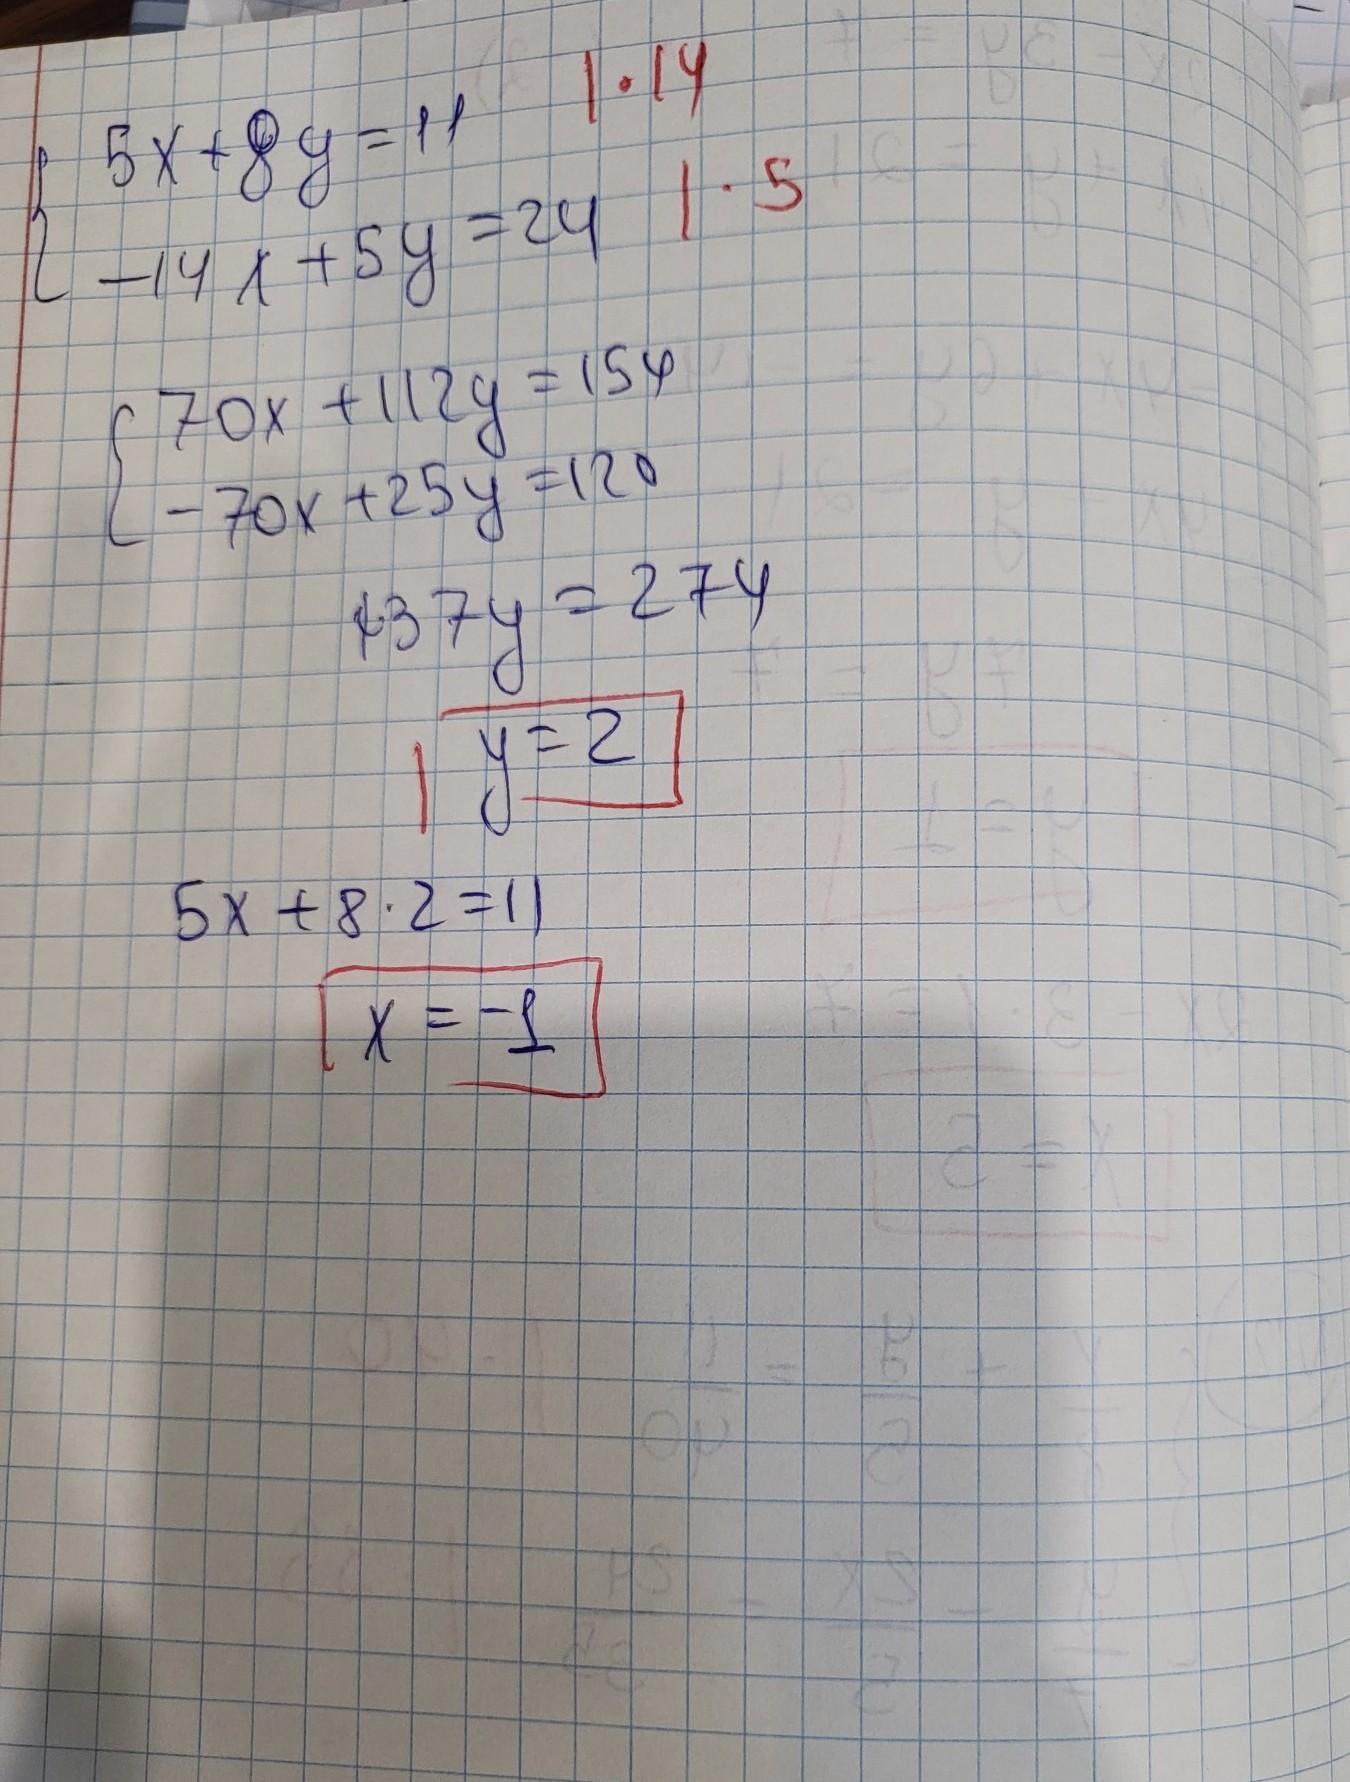 5x+8y=11 |·14
-14x+5y=24 |·5
70x+112y=154
-70x+25y=120
137y=274
y=2
5x+8·2=11
x=-1